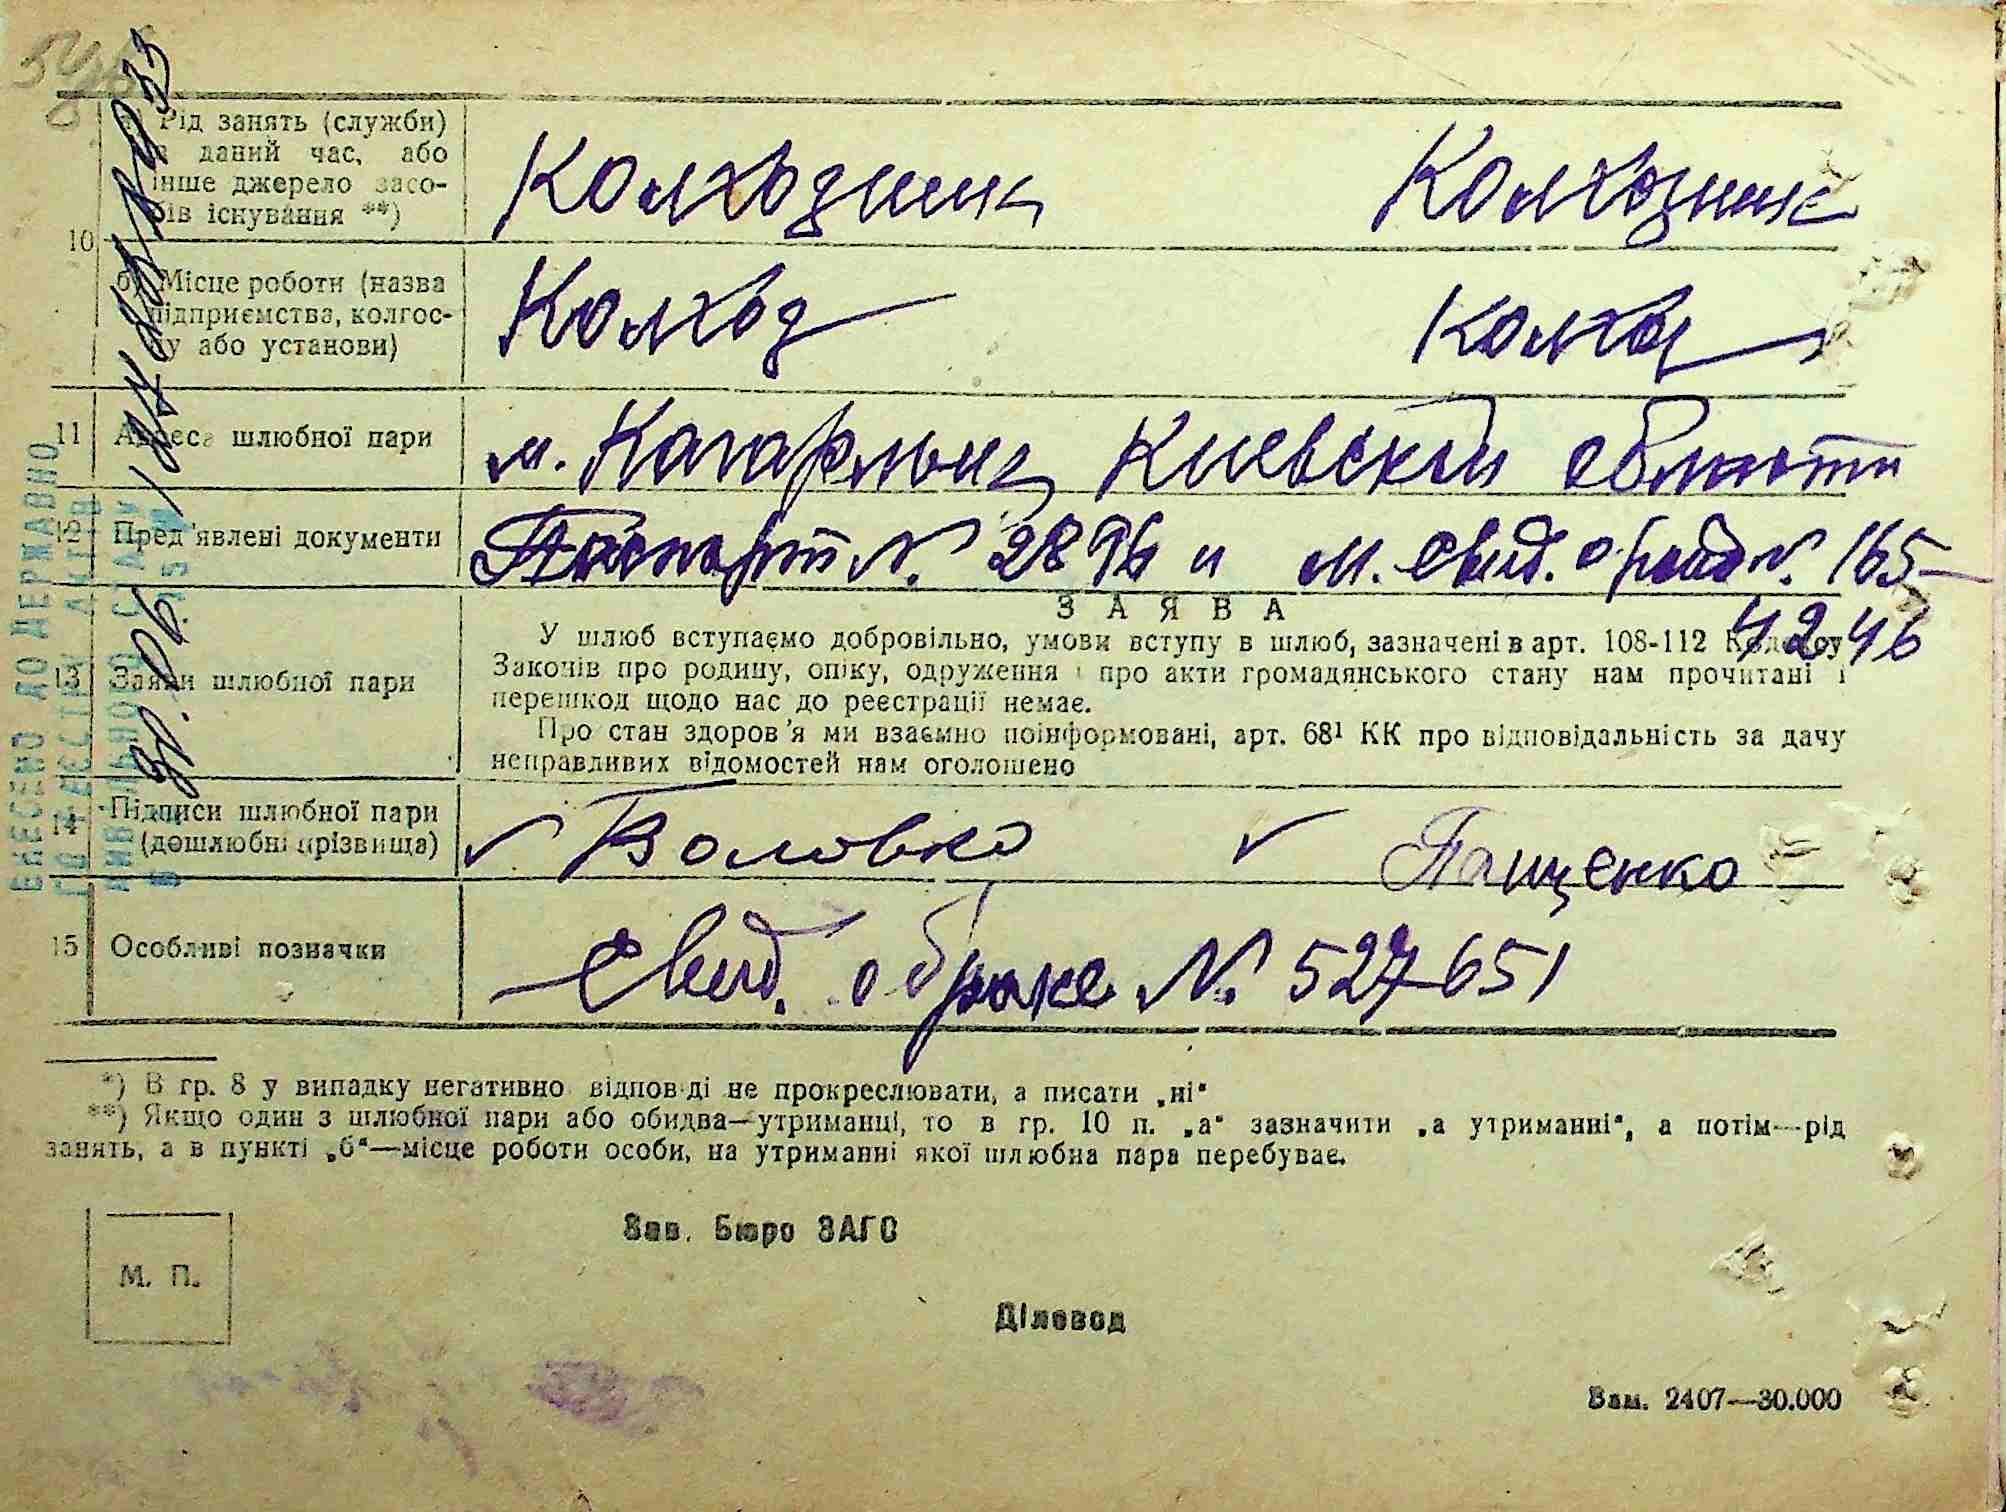 а) Рід занять (служби)
в даний час, або
інше джерело засо-
бів існування **)
Колхозник Колхозник
10
б) Місце роботи (назва
підприємства, колгос-
пу або установи)
Колхоз Колхоз
11 Адреса шлюбної пари м. Кагарлык Киевской области
12 Пред'явлені документи Паспорт N. 2896 и м. свид. о рожд N. 165-
4246
ЗАЯВА
У шлюб вступаємо добровільно, умови вступу в шлюб, зазначені в арт. 108-112 Кодексу
Законів про родину, опіку, одруження і про акти громадянського стану нам прочитані і
перешкод щодо нас до реєстрації немає.
13 Заяви шлюбної пари
Про стан здоров'я ми взаємно поінформовані, арт. 68¹ КК про відповідальність за дачу
неправдивих відомостей нам оголошено
14 Підписи шлюбної пари
(дошлюбні прізвища)
Воловко Пащенко
15 Особливі позначки Свид. о браке N. 527651
*) В гр. 8 у випадку негативно відповіді не прокреслювати, а писати „ні“
**) Якщо один з шлюбної пари або обидва—утриманці, то в гр. 10 п. „а“ зазначити „а утриманні“, а потім—рід
занять, а в пункті „б“—місце роботи особи, на утриманні якої шлюбна пара перебуває.
Зав. Бюро ЗАГС
М. П.
Діловод
Зам. 2407—30.000
ВНЕСЕНО ДО ДЕРЖАВНО
ГО РЕЄСТРУ АКТІВ
ЦИВІЛЬНОГО СТАНУ